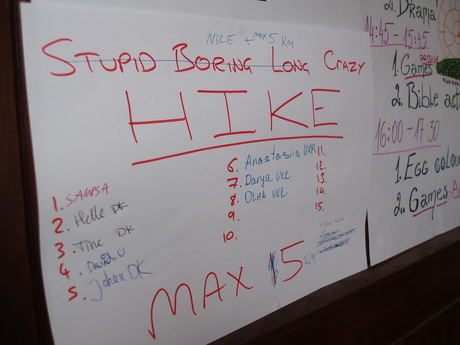 NICE + MAX 5 KM
STUPID BORING LONG CRAZY
HIKE
1. SAMPSA
2. Helle DK
3. Tine DK
4. David U
5. Johan DK
6. Anastasia UKR
7. Darya UKR
8. Olha UKR
9.
10.
11.
12.
13.
14.
15.
MAX 5 KM
2. Drama
14:45-15:45
1. Games
2. Bible acti
16:00-17:30
1. Egg colou
2. Games